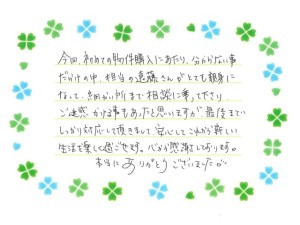 今回、初めての物件購入にあたり、分からない事
だらけの中、担当の遠藤さんがとても親身に
なって、細かい所まで相談に乗って下さり
ご迷惑かける事もあったと思いますが最後まで
しっかり対応して頂きまして、安心してこれから新しい
生活を楽しく過ごせます。心から感謝しております。
本当にありがとうございました